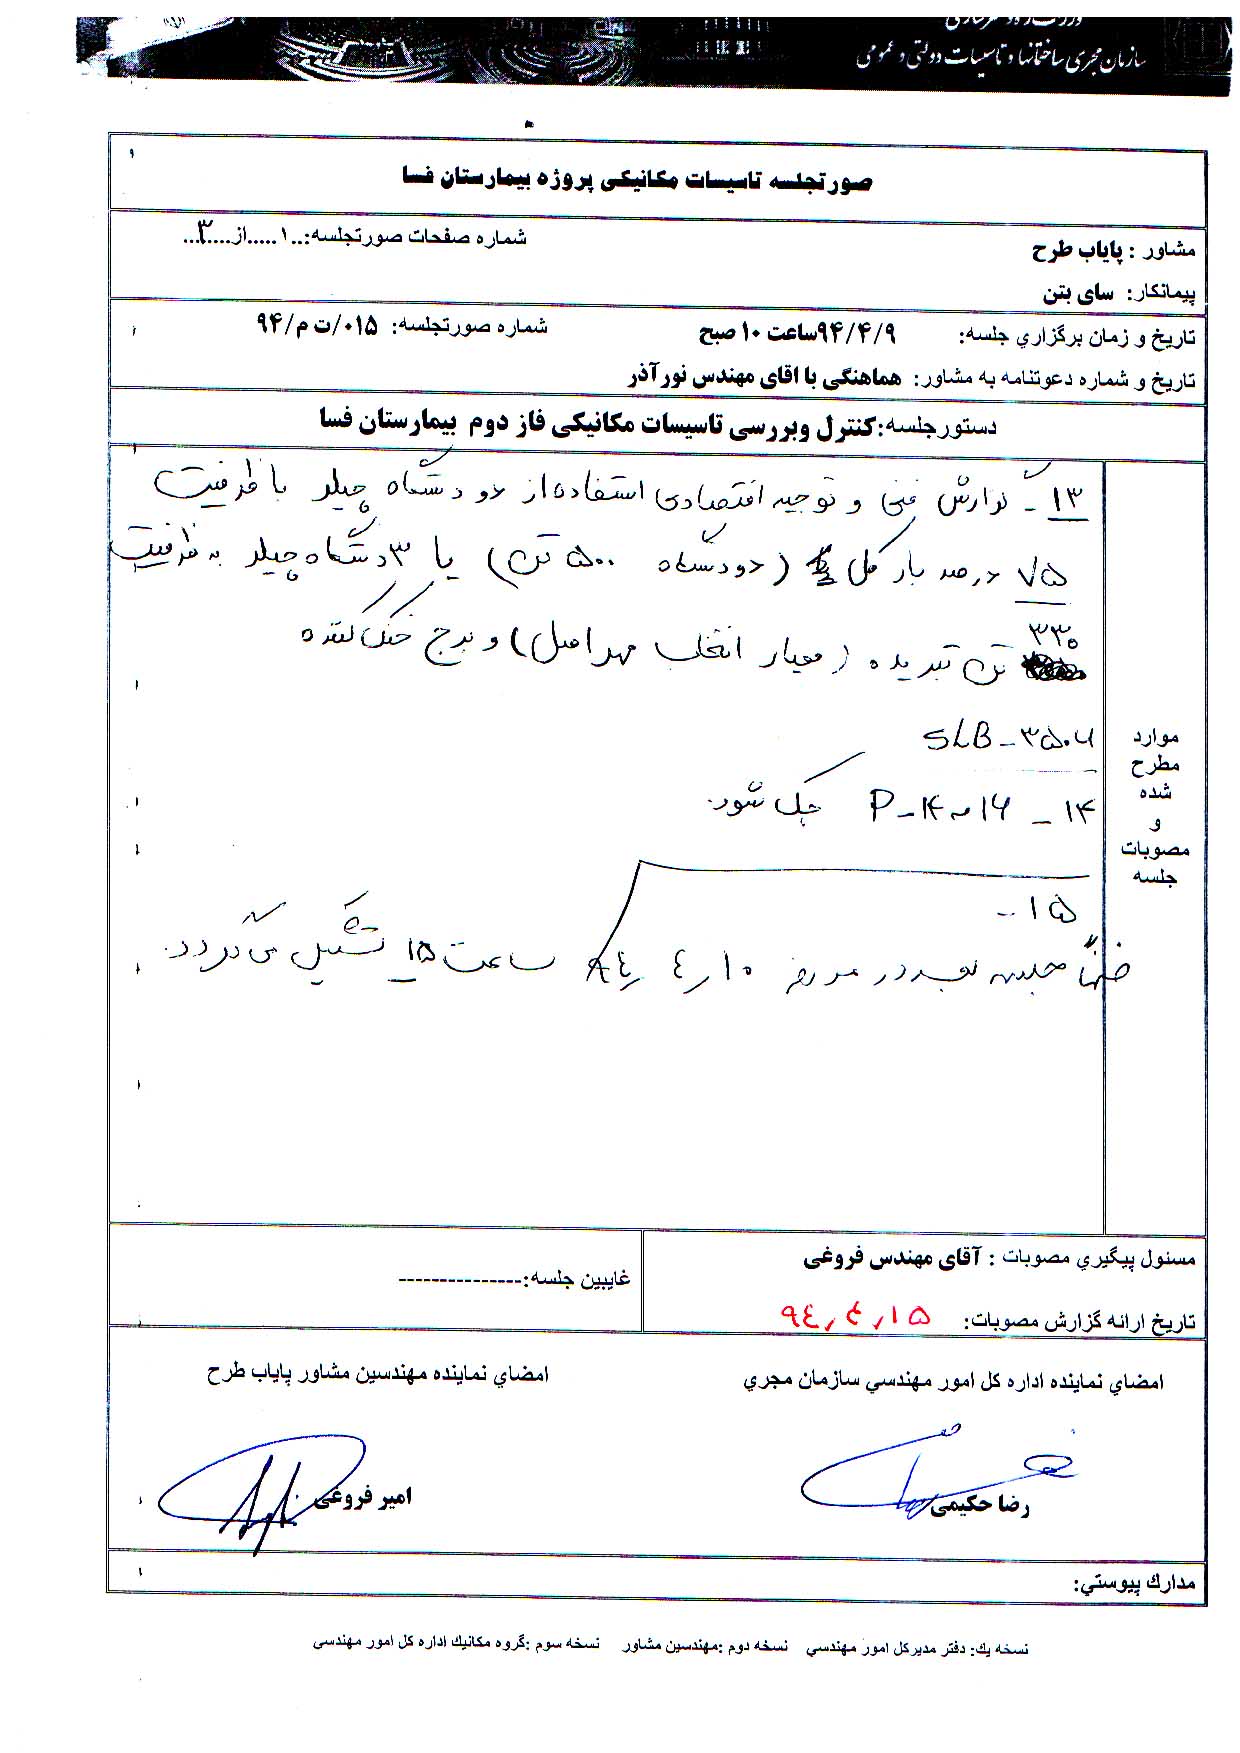 سازمان مجری ساختمانها و تاسیسات دولتی و عمومی
صورتجلسه تاسیسات مکانیکی پروژه بیمارستان فسا
مشاور : پایاب طرح
شماره صفحات صورتجلسه:..۱.....از....۳...
پیمانکار: سای بتن
تاریخ و زمان برگزاري جلسه: ۹۴/۴/۹ساعت ۱۰ صبح
شماره صورتجلسه: ۰۱۵/ت م/۹۴
تاریخ و شماره دعوتنامه به مشاور: هماهنگی با اقای مهندس نورآذر
دستورجلسه:کنترل وبررسی تاسیسات مکانیکی فاز دوم بیمارستان فسا
موارد
مطرح
شده
و
مصوبات
جلسه
۱۳ - گزارش فنی و توجیه اقتصادی استفاده از دو دستگاه چیلر با ظرفیت
۷۵ درصد بار کل (دو دستگاه ۵۰۰ تن) یا ۳ دستگاه چیلر به ظرفیت
۳۳۰
تن تبرید (معیار انتخاب مهر اصل) و برج خنک کننده
SLB-۳۵۰۷
۱۴ - P-۱۴-۱۶ چک شود.
۱۵ -
ضمناً جلسه بعد در روز ۹۴/۴/۱۰ ساعت ۱۵ تشکیل می گردد.
مسئول پیگیري مصوبات : آقای مهندس فروغی
غایبین جلسه:---------------
تاریخ ارائه گزارش مصوبات: ۹۴/۴/۱۵
امضاي نماینده اداره کل امور مهندسي سازمان مجري
امضاي نماینده مهندسین مشاور پایاب طرح
رضا حکیمی
امیر فروغی
مدارك پیوستي:
نسخه یك: دفتر مدیرکل امور مهندسي نسخه دوم :مهندسین مشاور نسخه سوم :گروه مکانیك اداره کل امور مهندسی